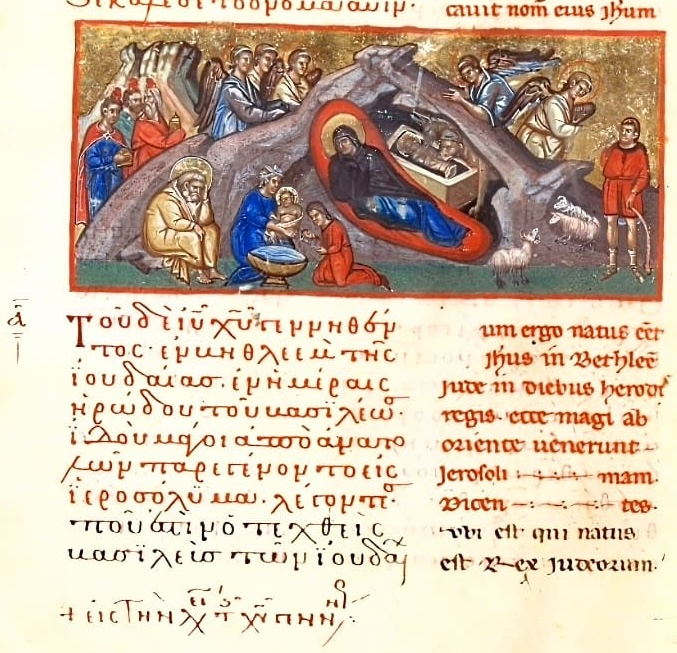 cauit nom̄ eius ihum
ᾱ
Τοῦ δὲ ἰῦ χῦ γεννηθέν
τος· ἐν βηθλεὲμ τῆς
ἰουδαίας. ἐν ἡμέραις
ἡρώδου τοῦ βασιλέως·
ἰδοὺ μάγοι ἀπὸ ἀνατο
λῶν παρεγένοντο εἰς
ἱεροσόλυμα. λέγοντες·
ποῦ ἐστιν ὁ τεχθεὶς
βασιλεὺς τῶν ἰουδαί
um ergo natus eēt
ihus in Bethleē
Iude in diebus herodis
regis ecce magi ab
oriente uenerunt
Ierosoli mam.
Dicen tes.
vbi est qui natus
est Rex Iudeorum.
+ εἰς τὴν